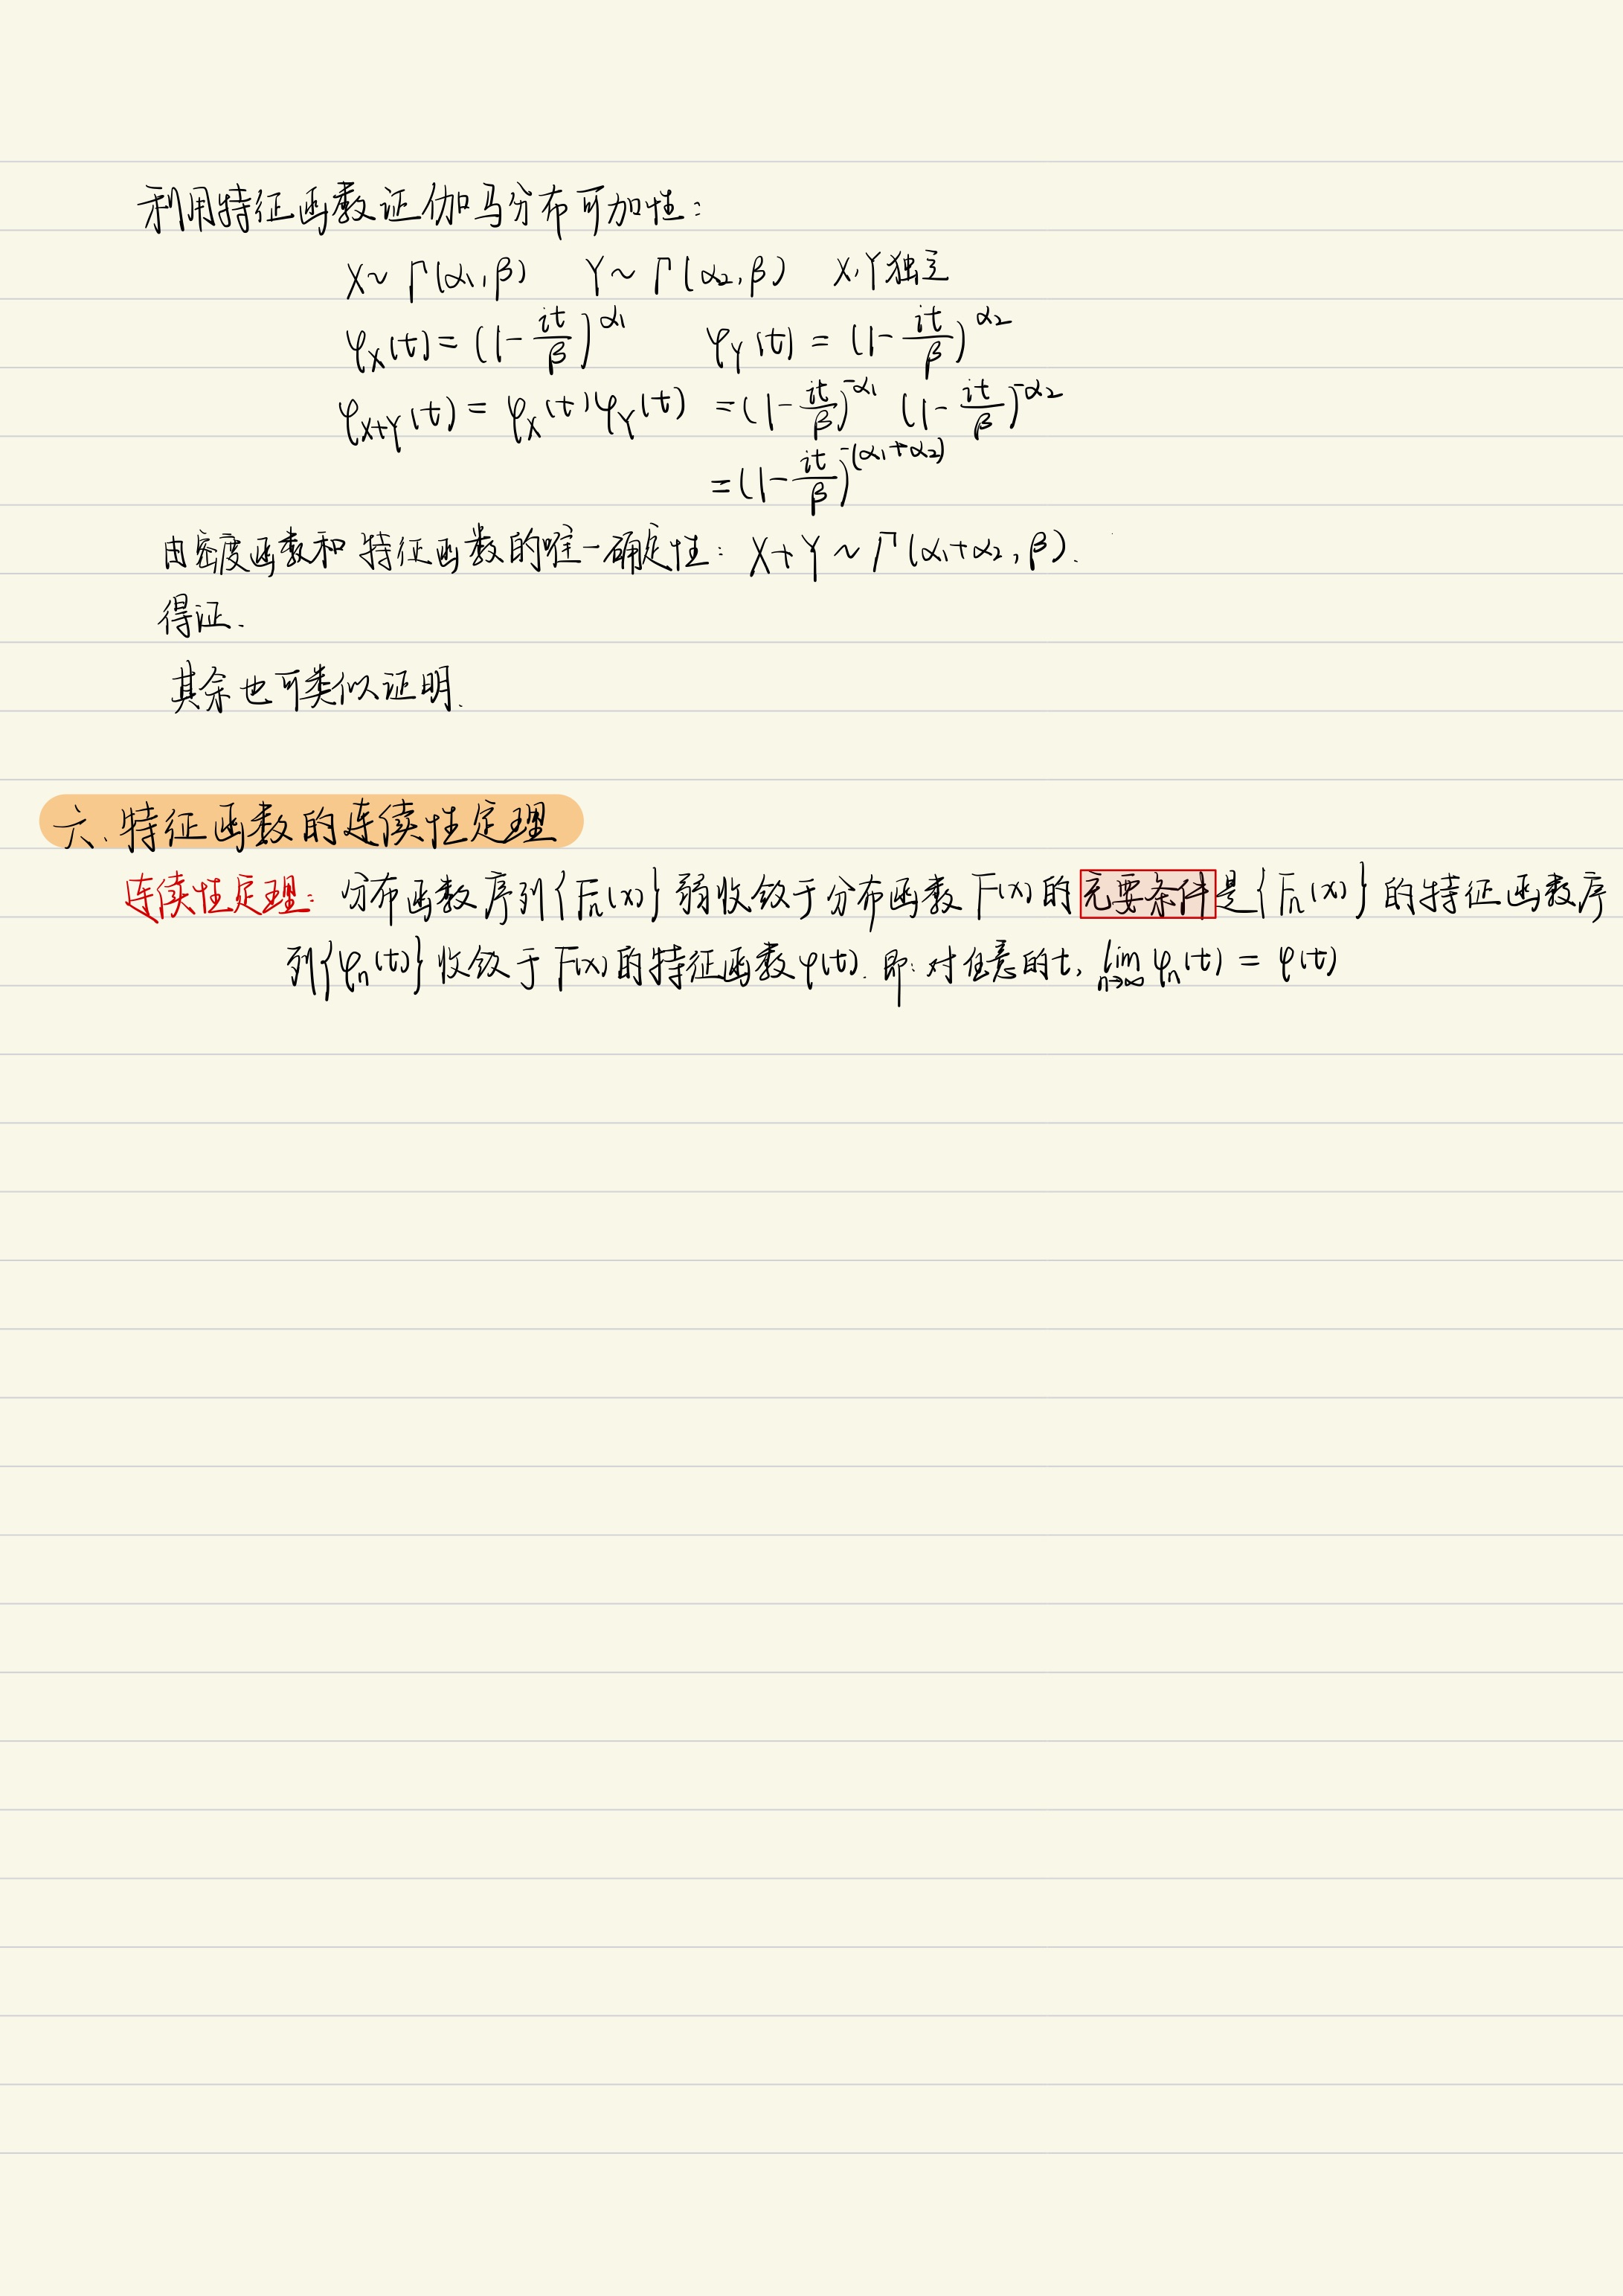 利用特征函数证伽马分布可加性：
X~Γ(α₁,β) Y~Γ(α₂,β) X,Y独立
φ_X(t)=(1-it/β)^α₁ φ_Y(t)=(1-it/β)^α₂
φ_{X+Y}(t)=φ_X(t)φ_Y(t) =(1-it/β)^{-α₁} (1-it/β)^{-α₂}
=(1-it/β)^{-(α₁+α₂)}
由密度函数和特征函数的唯一确定性：X+Y~Γ(α₁+α₂,β).
得证.
其余也可类似证明.
六、特征函数的连续性定理
连续性定理：分布函数序列{Fₙ(x)}弱收敛于分布函数F(x)的充要条件是{Fₙ(x)}的特征函数序
列{φₙ(t)}收敛于F(x)的特征函数φ(t).即:对任意的t, lim_{n→∞} φₙ(t)=φ(t)